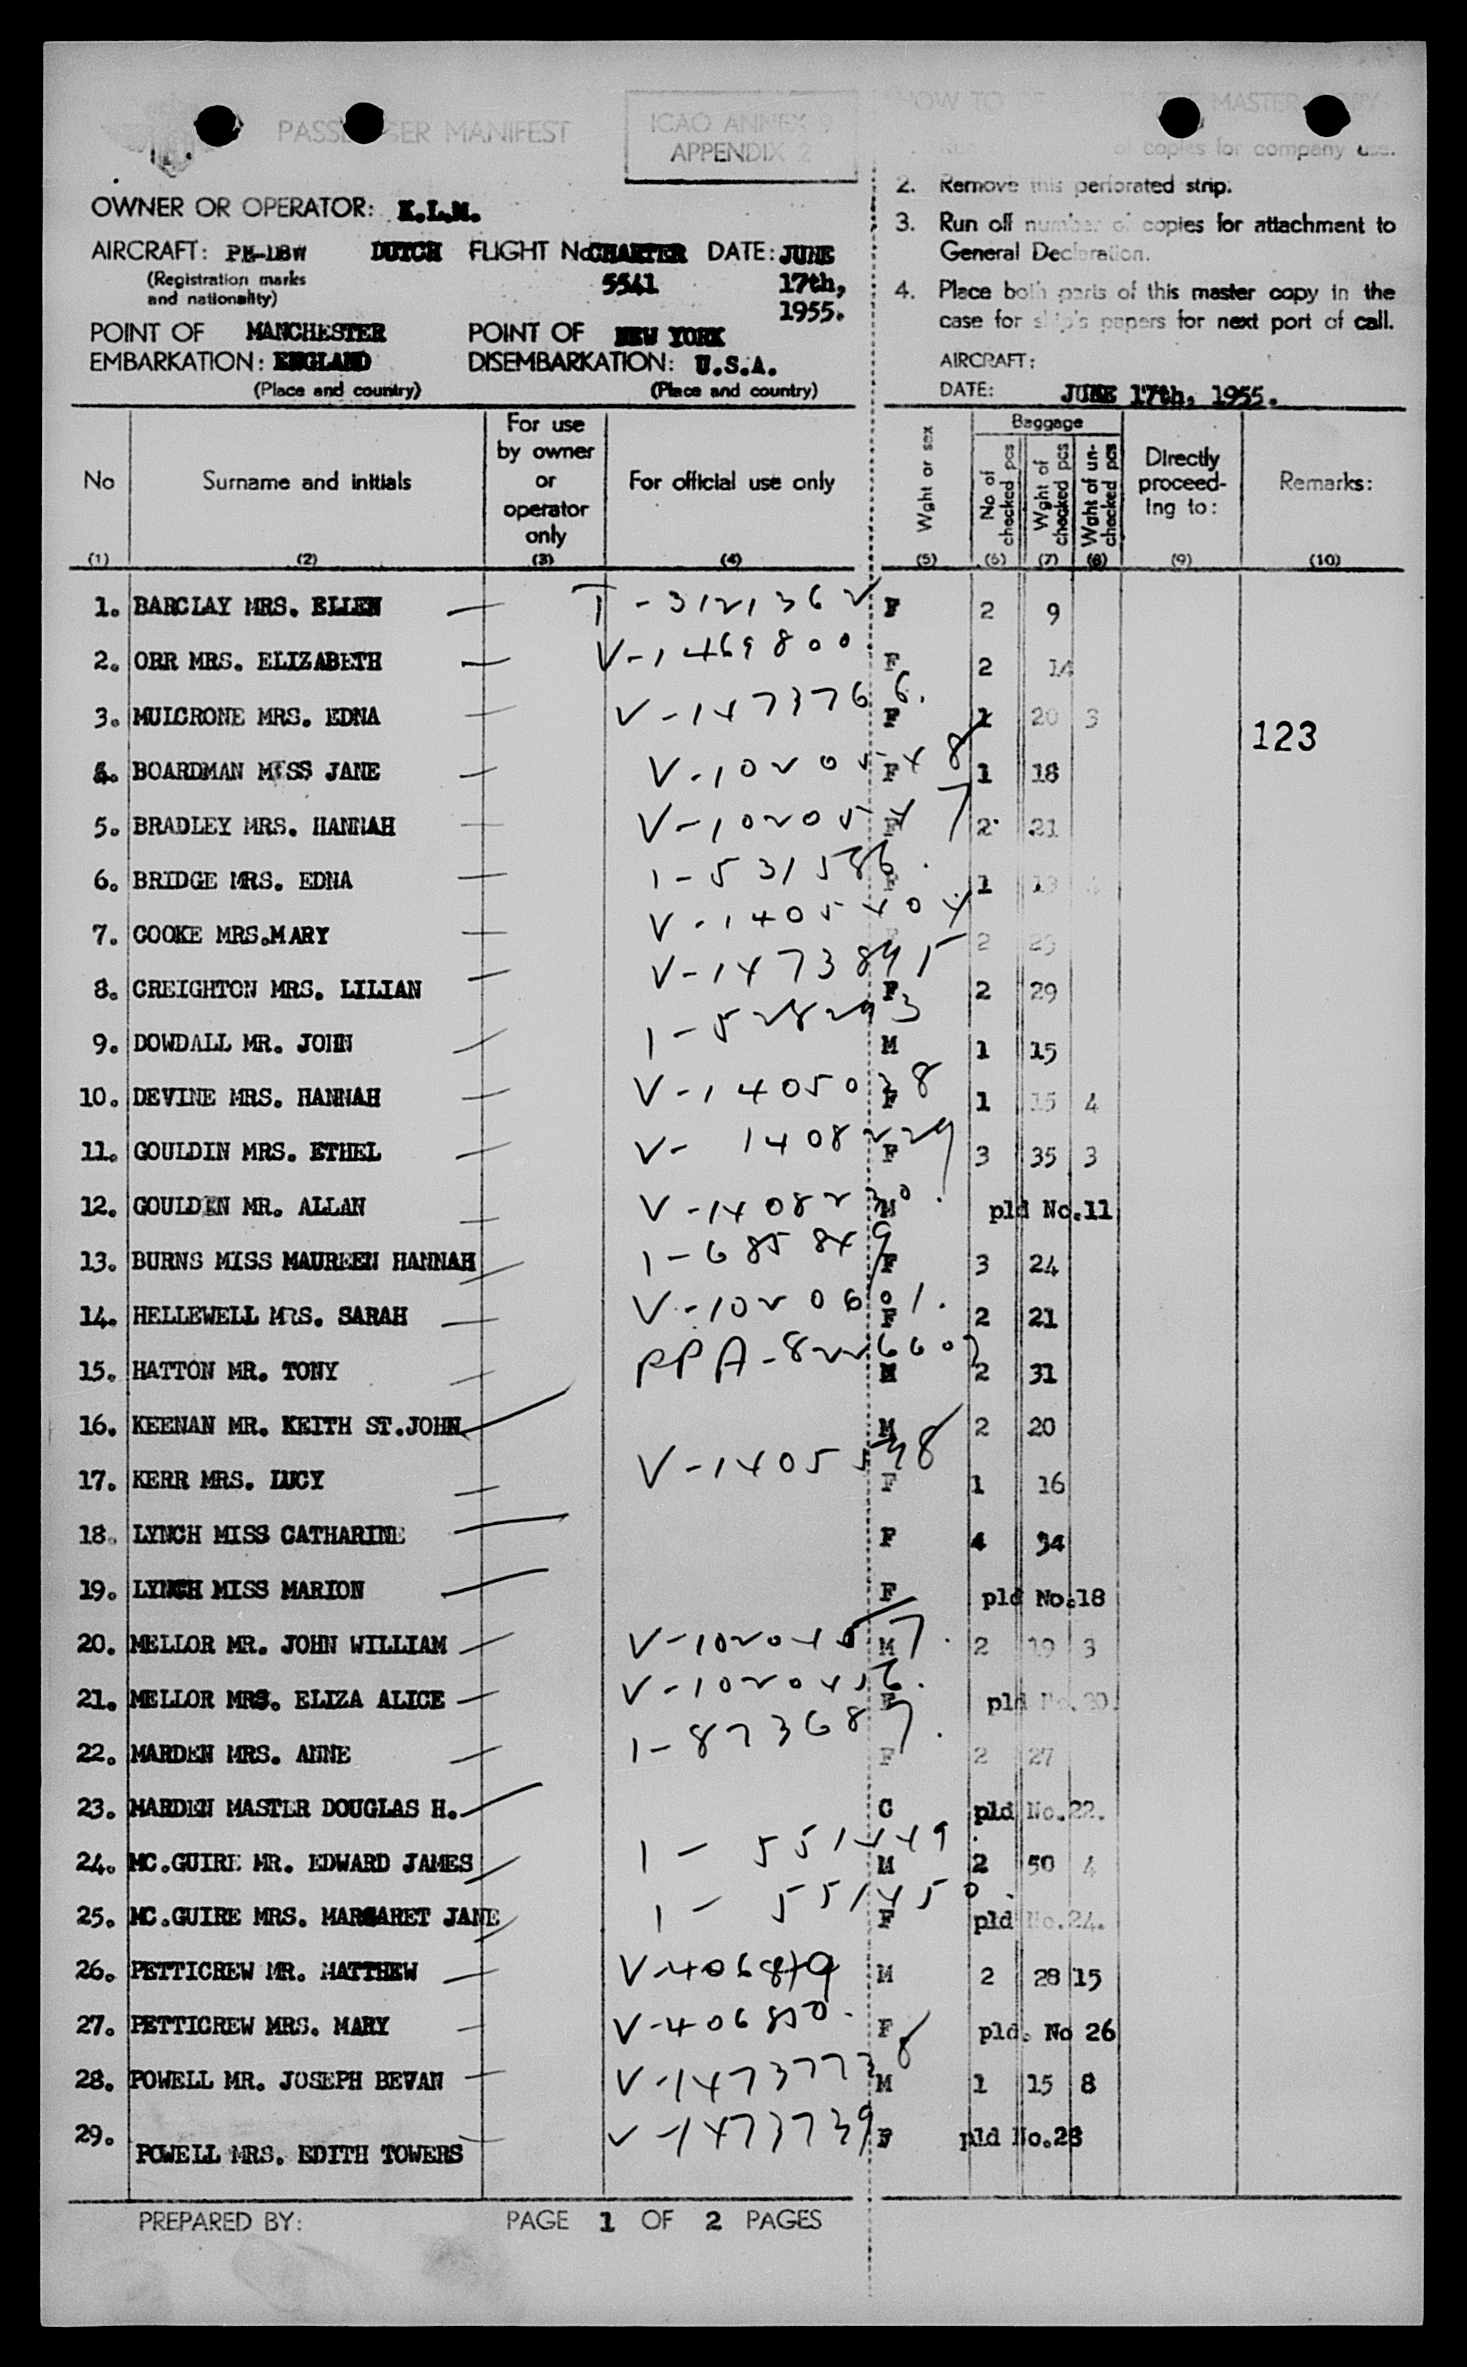 PASSENGER MANIFEST
ICAO ANNEX 9
APPENDIX 2
HOW TO MASTER COPY
of copies for company use.
2. Remove this perforated strip.
3. Run off number of copies for attachment to
General Declaration.
4. Place both parts of this master copy in the
case for ship's papers for next port of call.
AIRCRAFT:
DATE: JUNE 17th, 1955.
OWNER OR OPERATOR: K.L.M.
AIRCRAFT: PH-LBW DUTCH FLIGHT No CHARTER DATE: JUNE
(Registration marks 5541 17th,
and nationality) 1955.
POINT OF MANCHESTER POINT OF NEW YORK
EMBARKATION: ENGLAND DISEMBARKATION: U.S.A.
(Place and country) (Place and country)
No Surname and initials For use by owner or operator only For official use only Wght or sex Baggage No of checked pcs Wght of checked pcs Wght of un-checked pcs Directly proceed-ing to: Remarks:
(1) (2) (3) (4) (5) (6) (7) (8) (9) (10)
1. BARCLAY MRS. ELLEN — T-3121362 F 2 9
2. ORR MRS. ELIZABETH — V-1469800. F 2 14
3. MULCRONE MRS. EDNA — V-1473766. F 1 20 3
123
4. BOARDMAN MISS JANE — V-1020548 F 1 18
5. BRADLEY MRS. HANNAH — V-1020547 F 2 21
6. BRIDGE MRS. EDNA — 1-531586. 1
7. COOKE MRS.MARY — V-1405404 2
8. CREIGHTON MRS. LILIAN — V-1473895 F 2 29
9. DOWDALL MR. JOHN — 1-528293 M 1 15
10. DEVINE MRS. HANNAH — V-1405038 F 1 15 4
11. GOULDIN MRS. ETHEL — V-1408229 F 3 35 3
12. GOULDEN MR. ALLAN — V-1408230. M pld No.11
13. BURNS MISS MAUREEN HANNAH — 1-685849 F 3 24
14. HELLEWELL MRS. SARAH — V-1020601. F 2 21
15. HATTON MR. TONY — PPA-822660 M 2 31
16. KEENAN MR. KEITH ST.JOHN — M 2 20
17. KERR MRS. LUCY — V-1405538 F 1 16
18. LYNCH MISS CATHARINE — F 4 34
19. LYNCH MISS MARION — F pld No.18
20. MELLOR MR. JOHN WILLIAM — V-1020457. M 2 19 3
21. MELLOR MRS. ELIZA ALICE — V-1020456. F pld No.20.
22. MARDEN MRS. ANNE — 1-873687. F 2 27
23. MARDEN MASTER DOUGLAS H. — C pld No.22.
24. MC.GUIRE MR. EDWARD JAMES — 1-551449. M 2 50 4
25. MC.GUIRE MRS. MARGARET JANE — 1-551450. F pld No.24.
26. PETTICREW MR. MATTHEW — V-406849 M 2 28 15
27. PETTICREW MRS. MARY — V-406850. F pld. No 26
28. POWELL MR. JOSEPH BEVAN — V-1473738 M 1 15 8
29. POWELL MRS. EDITH TOWERS — V-1473739 F pld No.28
PREPARED BY: PAGE 1 OF 2 PAGES